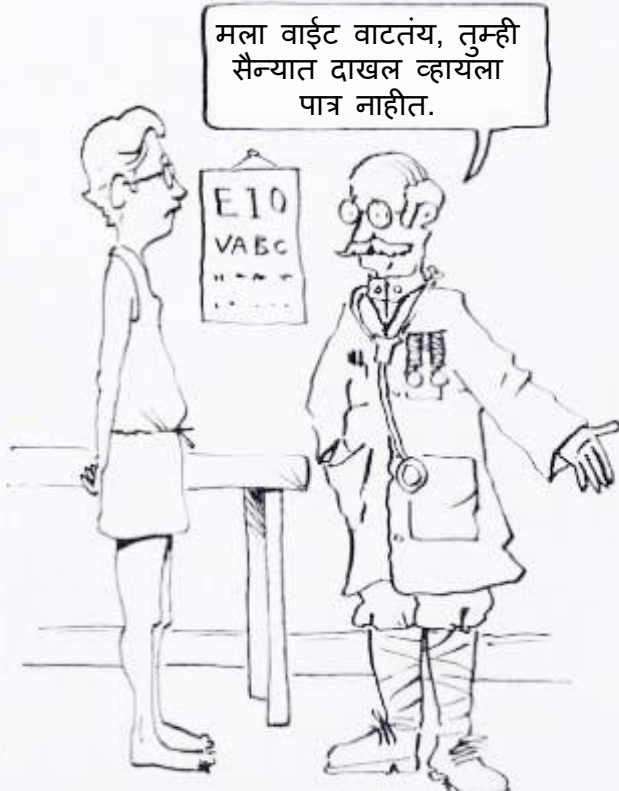 मला वाईट वाटतंय, तुम्ही
सैन्यात दाखल व्हायला
पात्र नाहीत.
E I O
VABC